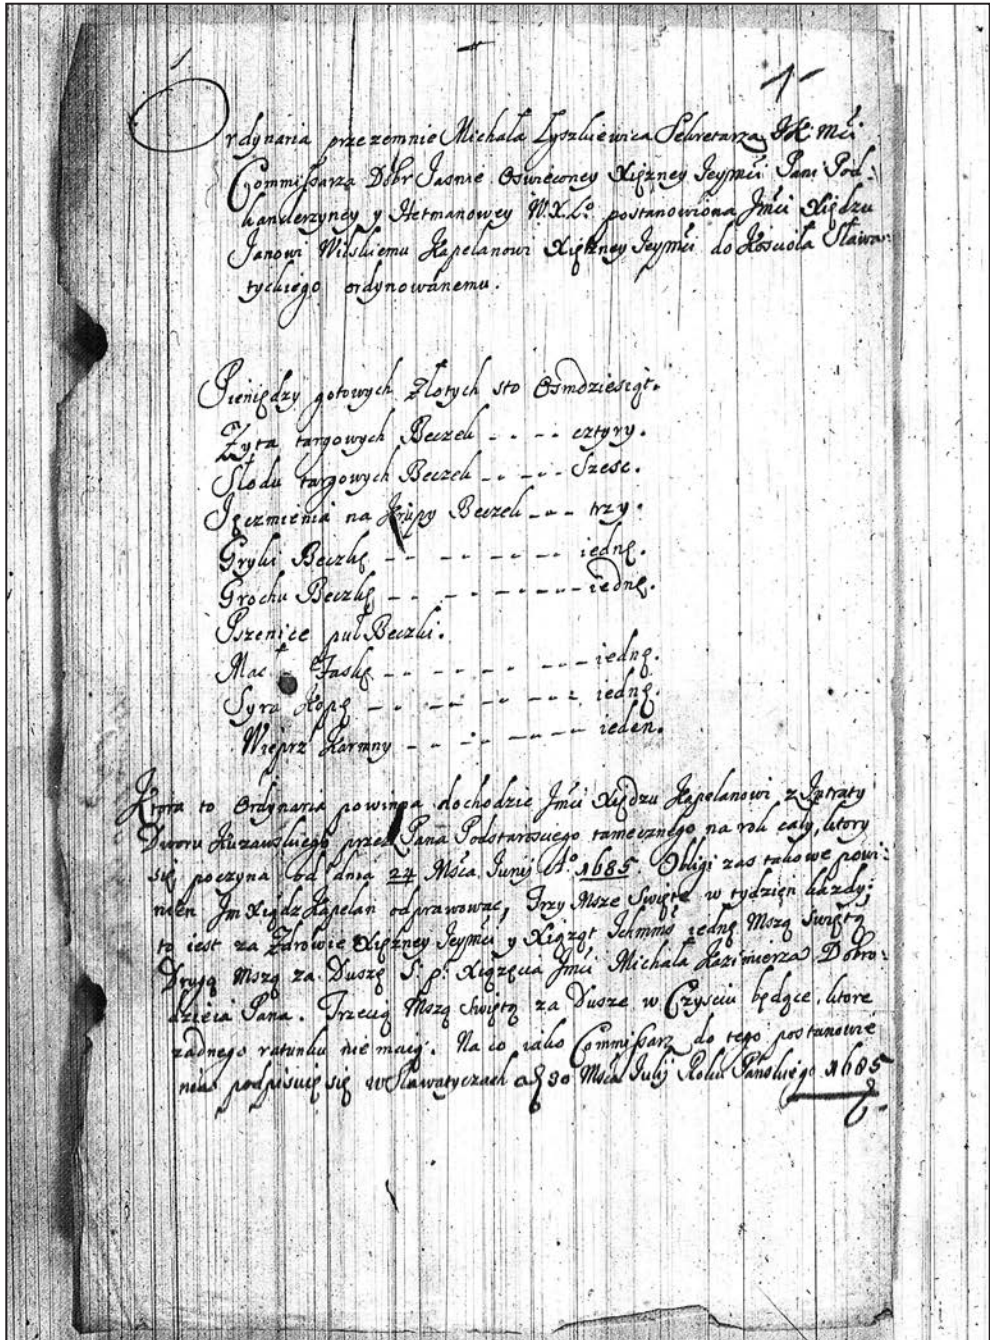 1
Ordynaria przezemnie Michała Łyszkiewica Sekretarza JK Mći
Commissarza Dobr Jasnie Oswieconey Xięzney Jeymći Pani Pod:
kanclerzyney y Hetmanowey W.X.Lº postanowiona Jmći Xiędzu
Janowi Wilskiemu Kapelanowi Xięzney Jeymći do Kościoła Sława:
tyckiego ordynowanemu.
Pieniędzy gotowych Złotych sto Osmdziesiąt.
Zyta targowych Beczek - - - - cztyry.
Słodu targowych Beczek - - - - Szesc.
Jęczmienia na Krupy Beczek - - - trzy.
Gryki Beczkę - - - - - - - iednę.
Grochu Beczkę - - - - - - - - iednę.
Pszenice puł Beczki.
Mac Faskę - - - - - - - iednę.
Syra Kopę - - - - - - - iednę.
Wieprz Karmny - - - - - - - ieden.
Ktora to Ordynaria powinna dochodzic Jmći Xiędzu Kapelanowi z Intraty
Dworu Kuzawskiego przez Pana Podstarosciego tamecznego na rok cały, ktory
się poczyna od dnia 24 Mśca Junij Aº 1685. Obligi zas takowe powi:
nien Jm Xiądz Kapelan odprawowac, Trzy Msze Swięte w tydzien kazdy;
to iest za Zdrowie Xięzney Jeymći y Xiążąt Ichmms iednę Mszą swiętą
Drugą Mszą za Duszę S. p. Xiązęcia Jmći Michała Kazimierza Dobro:
dzieia Pana. Trzecią Mszą swiętą za Dusze w Czyscu będące, ktore
zadnego ratunku nie maią. Na co iako Commissarz do tego postanowie
nia podpisuię się w Sławatyczach d 30 Mśca Julij Roku Panskiego 1685